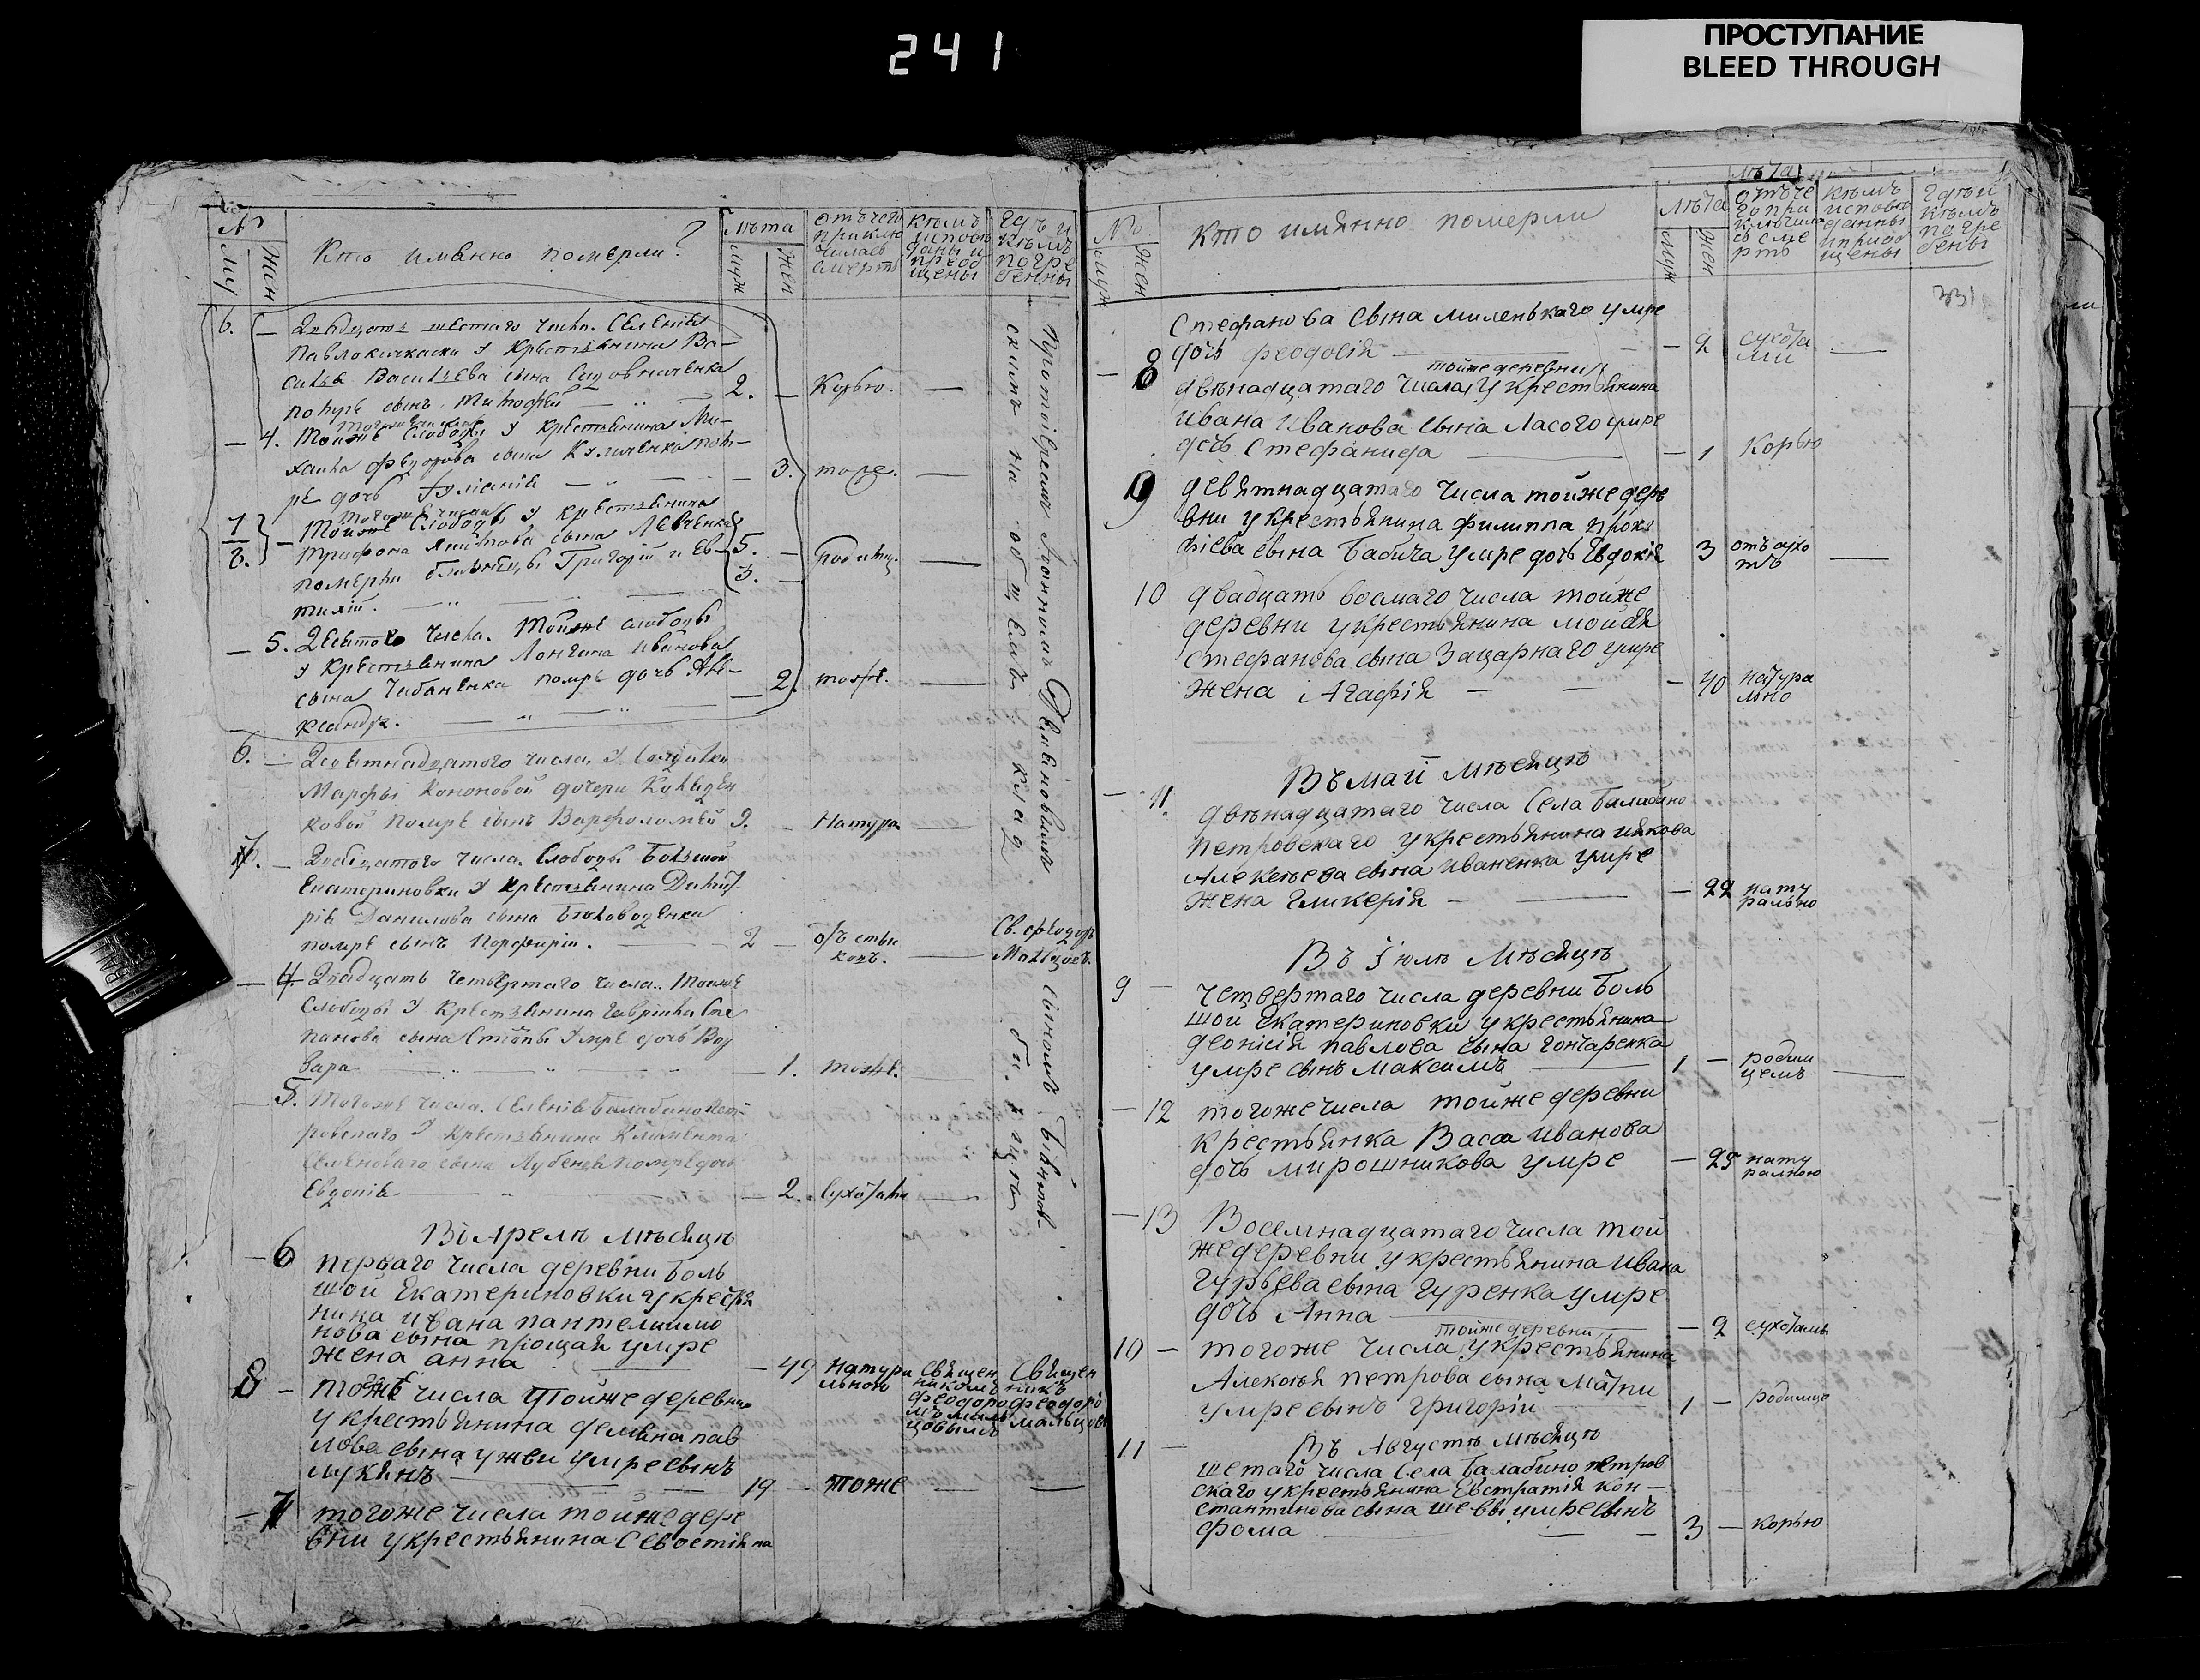 241
ПРОСТУПАНИЕ
BLEED THROUGH
№
Му
Жен
Кто имянно померли?
Лѣта
муж
жен
отъ чего
приклю
чилась
смерть
кѣмъ
исповѣ
даны и
пріоб
щены
гдѣ и
кѣмъ
погре
бенны
6. — Двадцать шестаго числа. Селенія
Павлокичкаски у крестьянина Ва-
силья Васильева сына
помре сынъ Тимофей — 2. — Корью. —
— 4. Тогоже числа
Слободы у крестьянина Ми-
хаила Федорова сына Куличенка пом-
ре дочь Іуліанія — 3. тоже. —
7
8. — Тогоже числа
Слободы у крестьянина
Трифона сына Левченка
померли близнецы Григорій и Ев- 5. — Родимц. —
тихій. 5. —
— 5. Десятого числа. Тойже слободы
у крестьянина Лонгина Иванова
сына Чабаненка помре дочь Але- — 2. тоже. —
ксандра.
6. — Девятнадцатого числа, у солдатки
Марфы Кононовой дочери
ковой помре сынъ Варфоломей 9. — Натура —
7. — Двадцатого числа. Слободы Большой
Екатериновки у крестьянина Дмит-
рія Данилова сына
помре сынъ Порфирій. — 2 — —
Св. Феодоръ
Мальцовъ.
— 4 Двадцать четвертаго числа. Тойже
Слободы у крестьянина Гавріила Сте
панова сына умре дочь Вар
вара — 1. тоже. —
— 5. Тогоже числа. Селенія Балабино Пет-
ровскаго у крестьянина Климента
сына помре дочь
Евдокія — 2. Сухотами —
Протоіереемъ Іоанномъ
на общемъ кладбищѣ
Въ Апрелѣ мѣсяцѣ
— 6 перваго числа деревни Боль
шой Екатериновки у крестья
нина Ивана Пантелиимо
нова сына умре
жена Анна — 49 натура
льною
Священ
никомъ
Феодоро
мъ Маль
цовымъ
Священ
никъ
Феодоръ
Мальцовъ
8 — числа тойже деревни
у крестьянина Демяна Пав
лова сына умре сынъ
Лукянъ — 19 — тоже — —
— 7 тогоже числа тойже дере
вни у крестьянина Севостіяна
№
муж
жен
Кто имянно померли
Лѣта
муж
жен
отъ че
го при
ключила
сь сме
рть
кѣмъ
исповѣ
данны
и приоб
щены
гдѣ и
кѣмъ
погре
бены
331
Стефанова сына Миленькаго умре
дочь Феодосія — 2 сухота
ми —
— 8 двѣнадцатаго числа тойже деревни у крестьянина
Ивана Иванова сына Ласого умре
дочь Стефанида — 1 Корью
9 девятнадцатаго числа тойже дере
вни у крестьянина Филиппа Проко
фіева сына Бабича умре дочь Евдокія 3 —
10 двадцать восмаго числа тойже
деревни у крестьянина Мойсея
Стефанова сына Зацарнаго умре
жена Агафія — 40 натура
льно
Въ Маіи мѣсяцѣ
— 11. двѣнадцатаго числа Села Балабино
Петровскаго у крестьянина Иякова
Алексеева сына Иваненка умре
жена Гликерія — 22 нату
рально
Въ Іюлѣ Мѣсяцѣ
9 — четвертаго числа деревни Боль
шой Екатериновки у крестьянина
Деонісія Павлова сына Гончаренка
умре сынъ Максимъ — 1 — родим
цемъ —
— 12 тогоже числа тойже деревни
крестьянка Васса Иванова
дочь Мирошникова умре — 25 нату
ралною
— 13 Восемнадцатаго числа той
же деревни у крестьянина Ивана
Гурьева сына Гуренка умре
дочь Анна — 2 сухотамы
10 — тогоже числа тойже деревни у крестьянина
Алексея Петрова сына
умре сынъ Григорій — 1 — родимцо
Въ Августѣ мѣсяцѣ
11 — шестаго числа Села Балабино Петров
скаго у крестьянина Евстратія Кон—
стантинова сына Шевы умре сынъ
Фома — 3 — корью